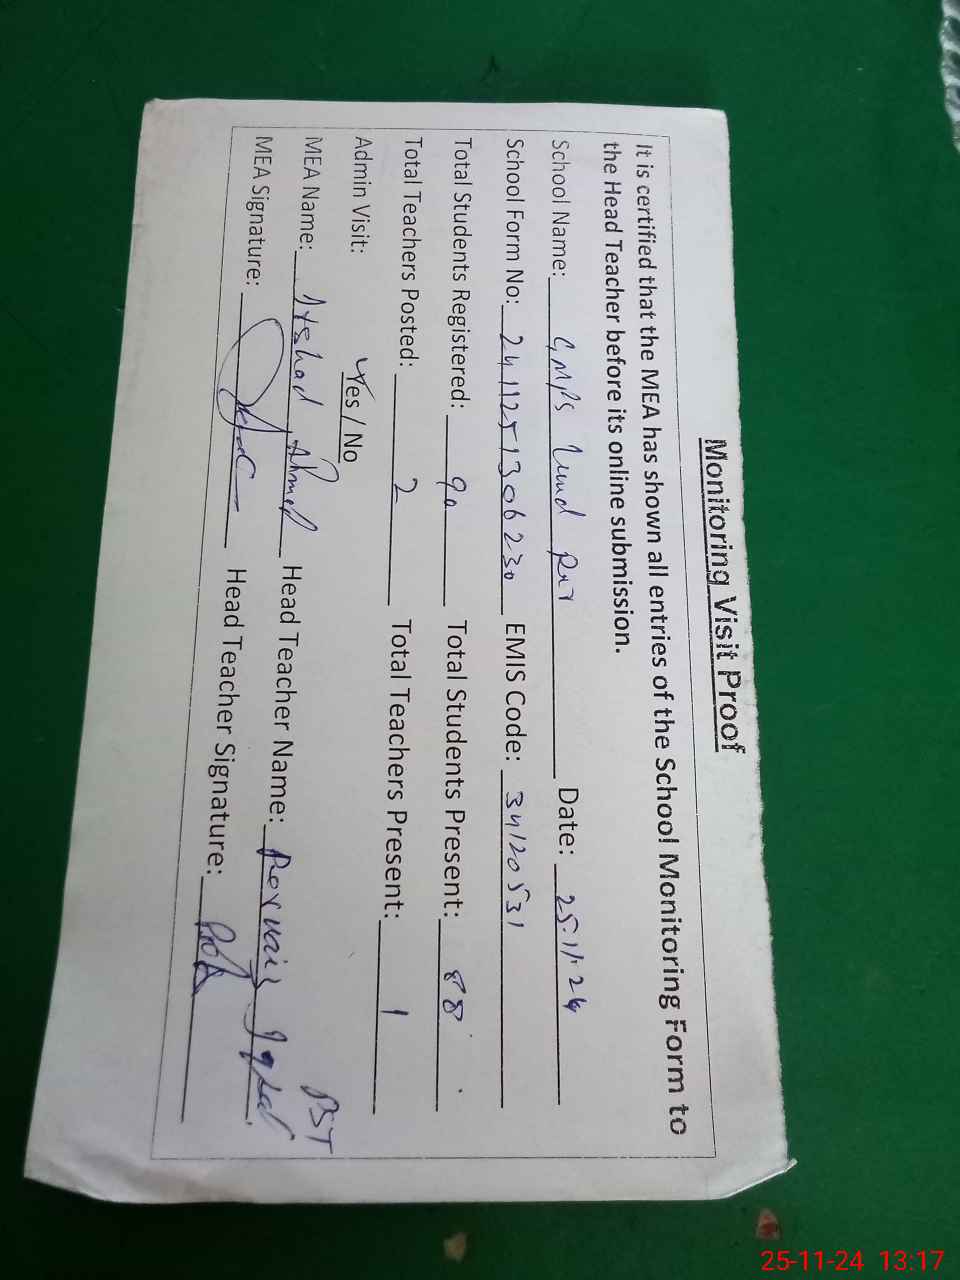 Monitoring Visit Proof
It is certified that the MEA has shown all entries of the School Monitoring Form to
the Head Teacher before its online submission.
School Name: GMPS Date: 25.11.24
School Form No: 2411251306230 EMIS Code: 34120531
Total Students Registered: 90 Total Students Present: 88
Total Teachers Posted: 2 Total Teachers Present: 1
Admin Visit: Yes / No
PST
MEA Name: Arshad Ahmed Head Teacher Name: Pervaiz Iqbal
MEA Signature: Head Teacher Signature:
25-11-24 13:17